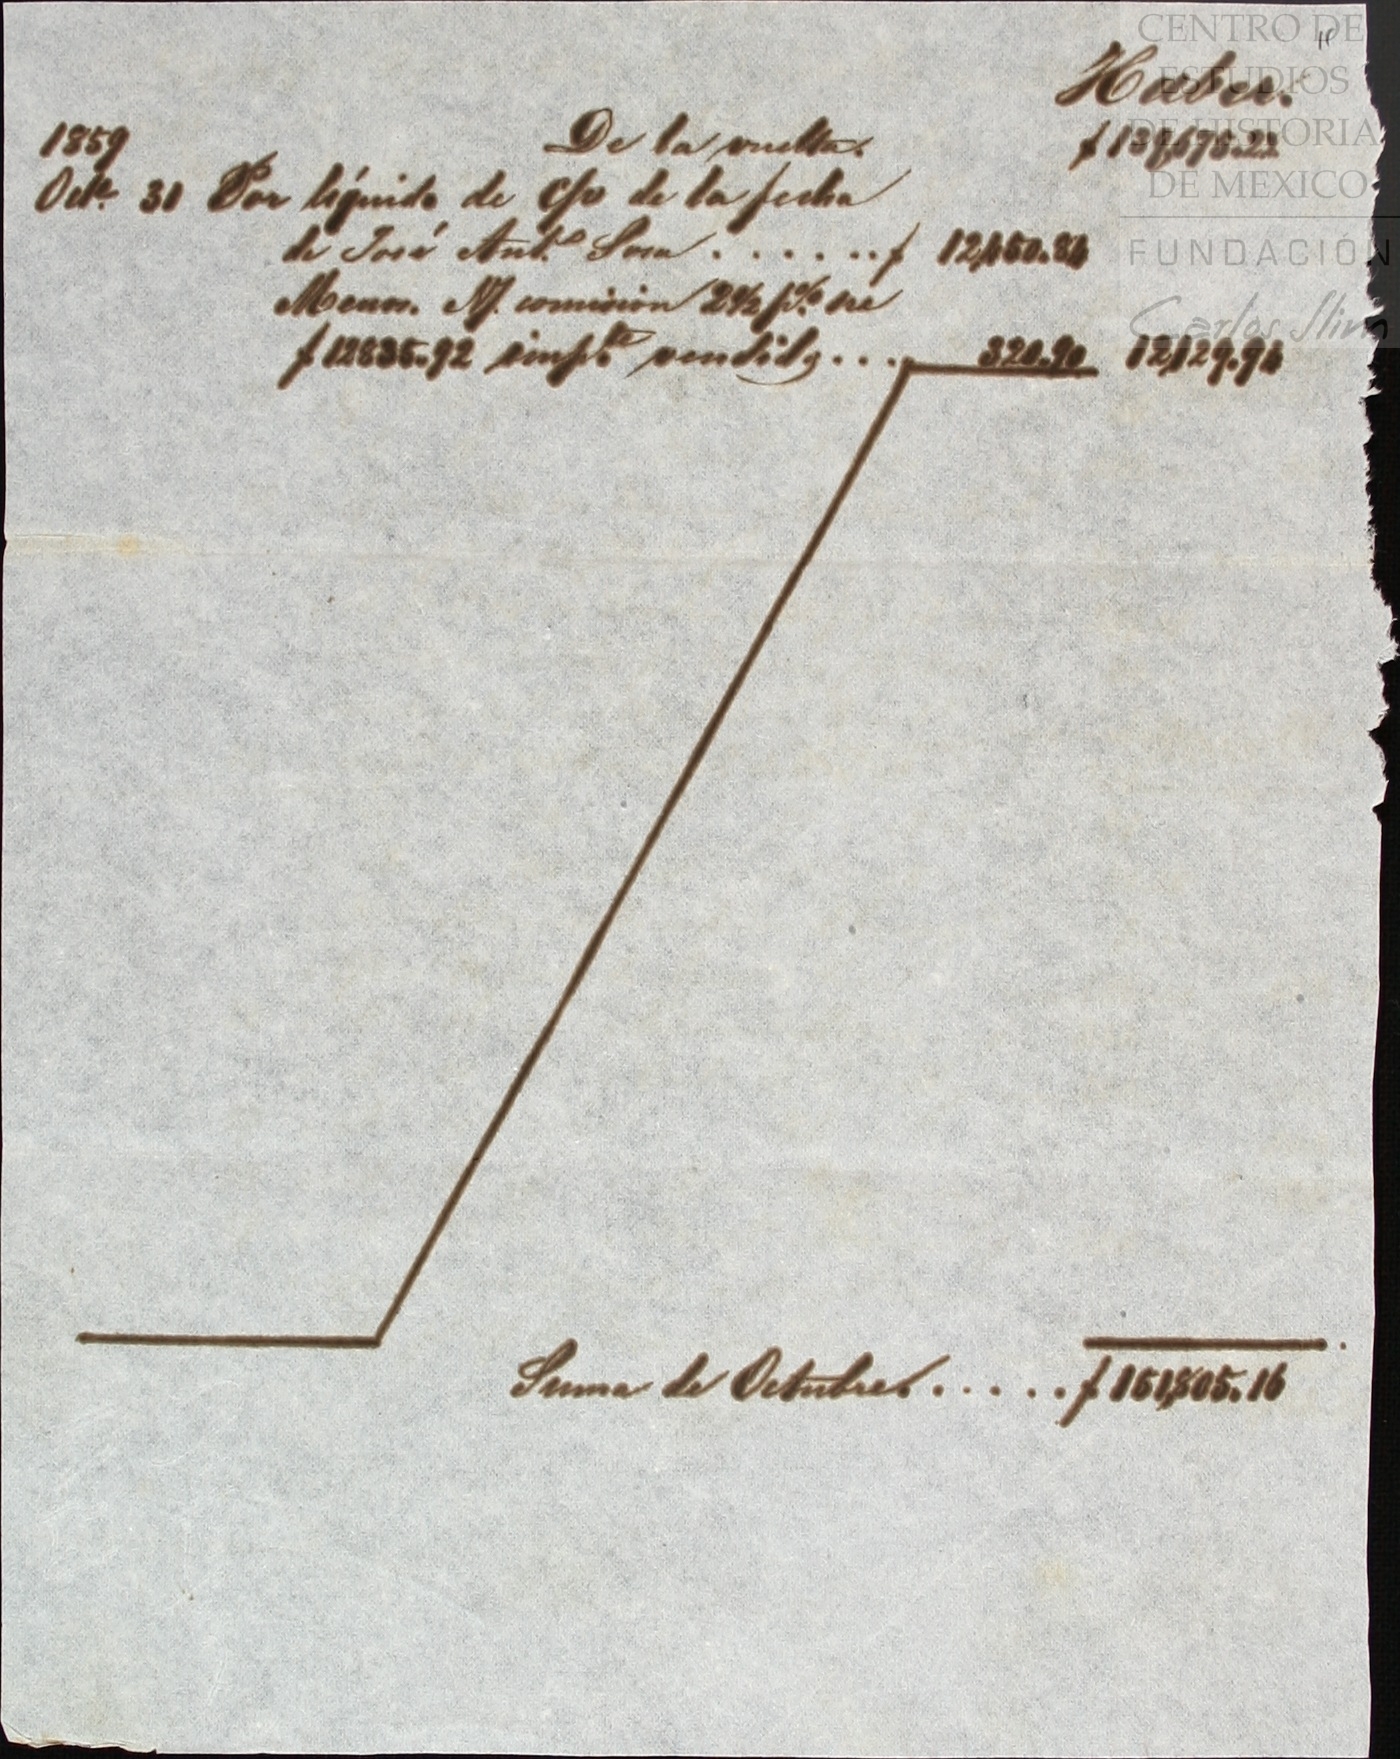 CENTRO DE
ESTUDIOS
DE HISTORIA
DE MEXICO
FUNDACIÓN
Carlos Slim
Haber.
1859 De la vuelta.
Oct.e 31 Por líquido de c/v de la fecha
de José Ant.o Sosa . . . . . . . $ 12,450.84
Menos. N/. comisión 2 1/2 p.% sre
$ 12835.92 imp.te vendido . . . . 320.90 12,129.94
Suma de Octubre . . . . . . $